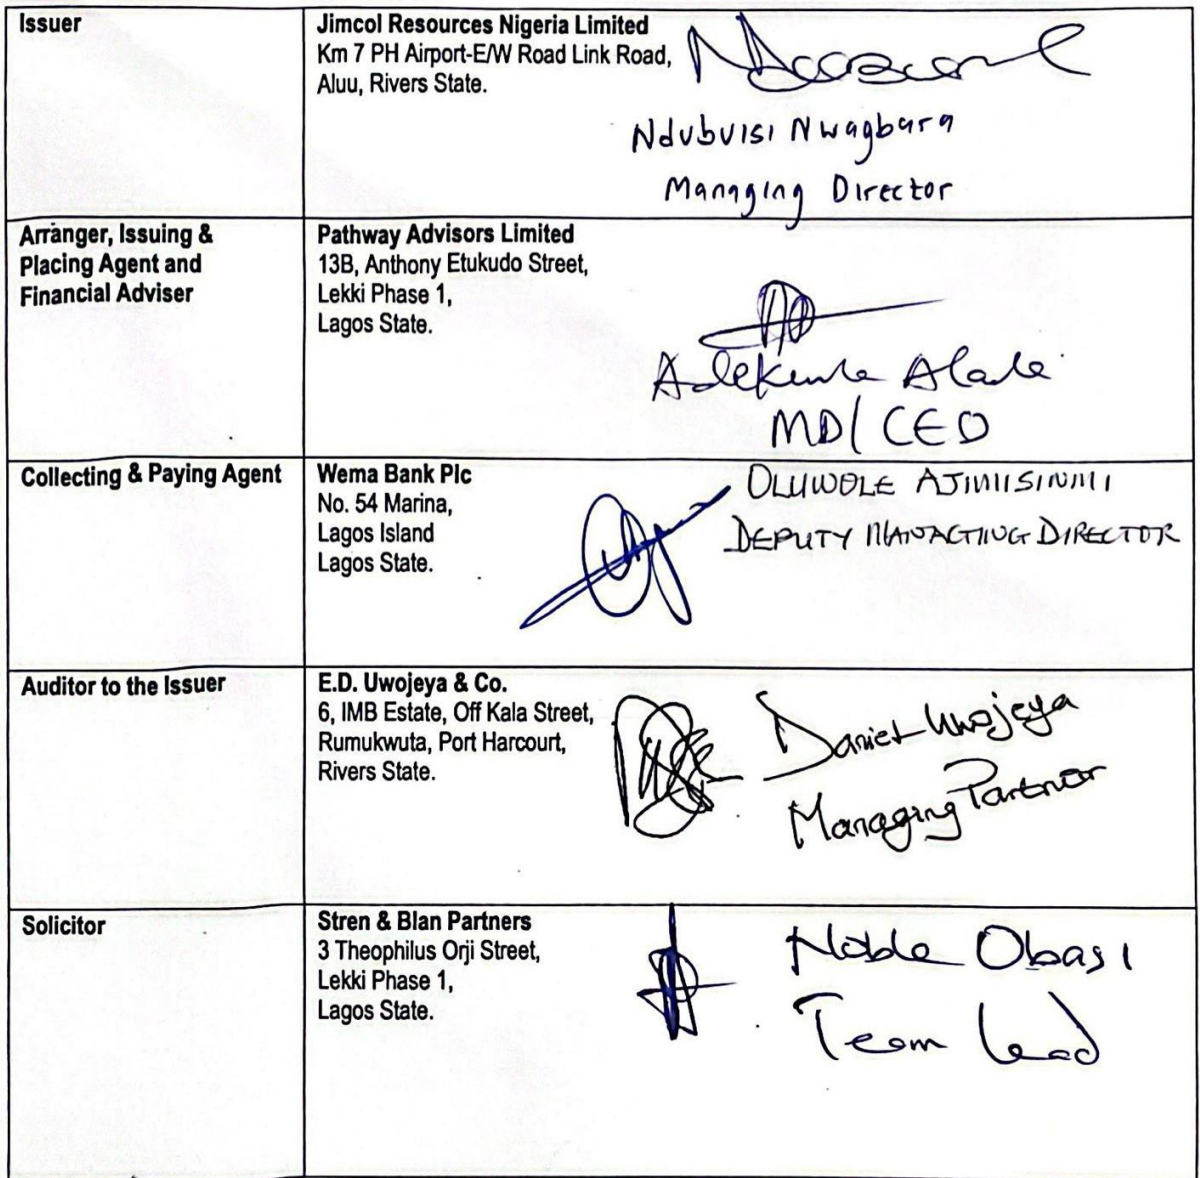 Issuer
Jimcol Resources Nigeria Limited
Km 7 PH Airport-E/W Road Link Road,
Aluu, Rivers State.
Ndubuisi Nwagbara
Managing Director
Arranger, Issuing &
Placing Agent and
Financial Adviser
Pathway Advisors Limited
13B, Anthony Etukudo Street,
Lekki Phase 1,
Lagos State.
Adekunle Alade
MD/CEO
Collecting & Paying Agent
Wema Bank Plc
No. 54 Marina,
Lagos Island
Lagos State.
OLUWOLE AJIMISINMI
DEPUTY MANAGING DIRECTOR
Auditor to the Issuer
E.D. Uwojeya & Co.
6, IMB Estate, Off Kala Street,
Rumukwuta, Port Harcourt,
Rivers State.
Daniel Uwojeya
Managing Partner
Solicitor
Stren & Blan Partners
3 Theophilus Orji Street,
Lekki Phase 1,
Lagos State.
Noble Obasi
Team Lead